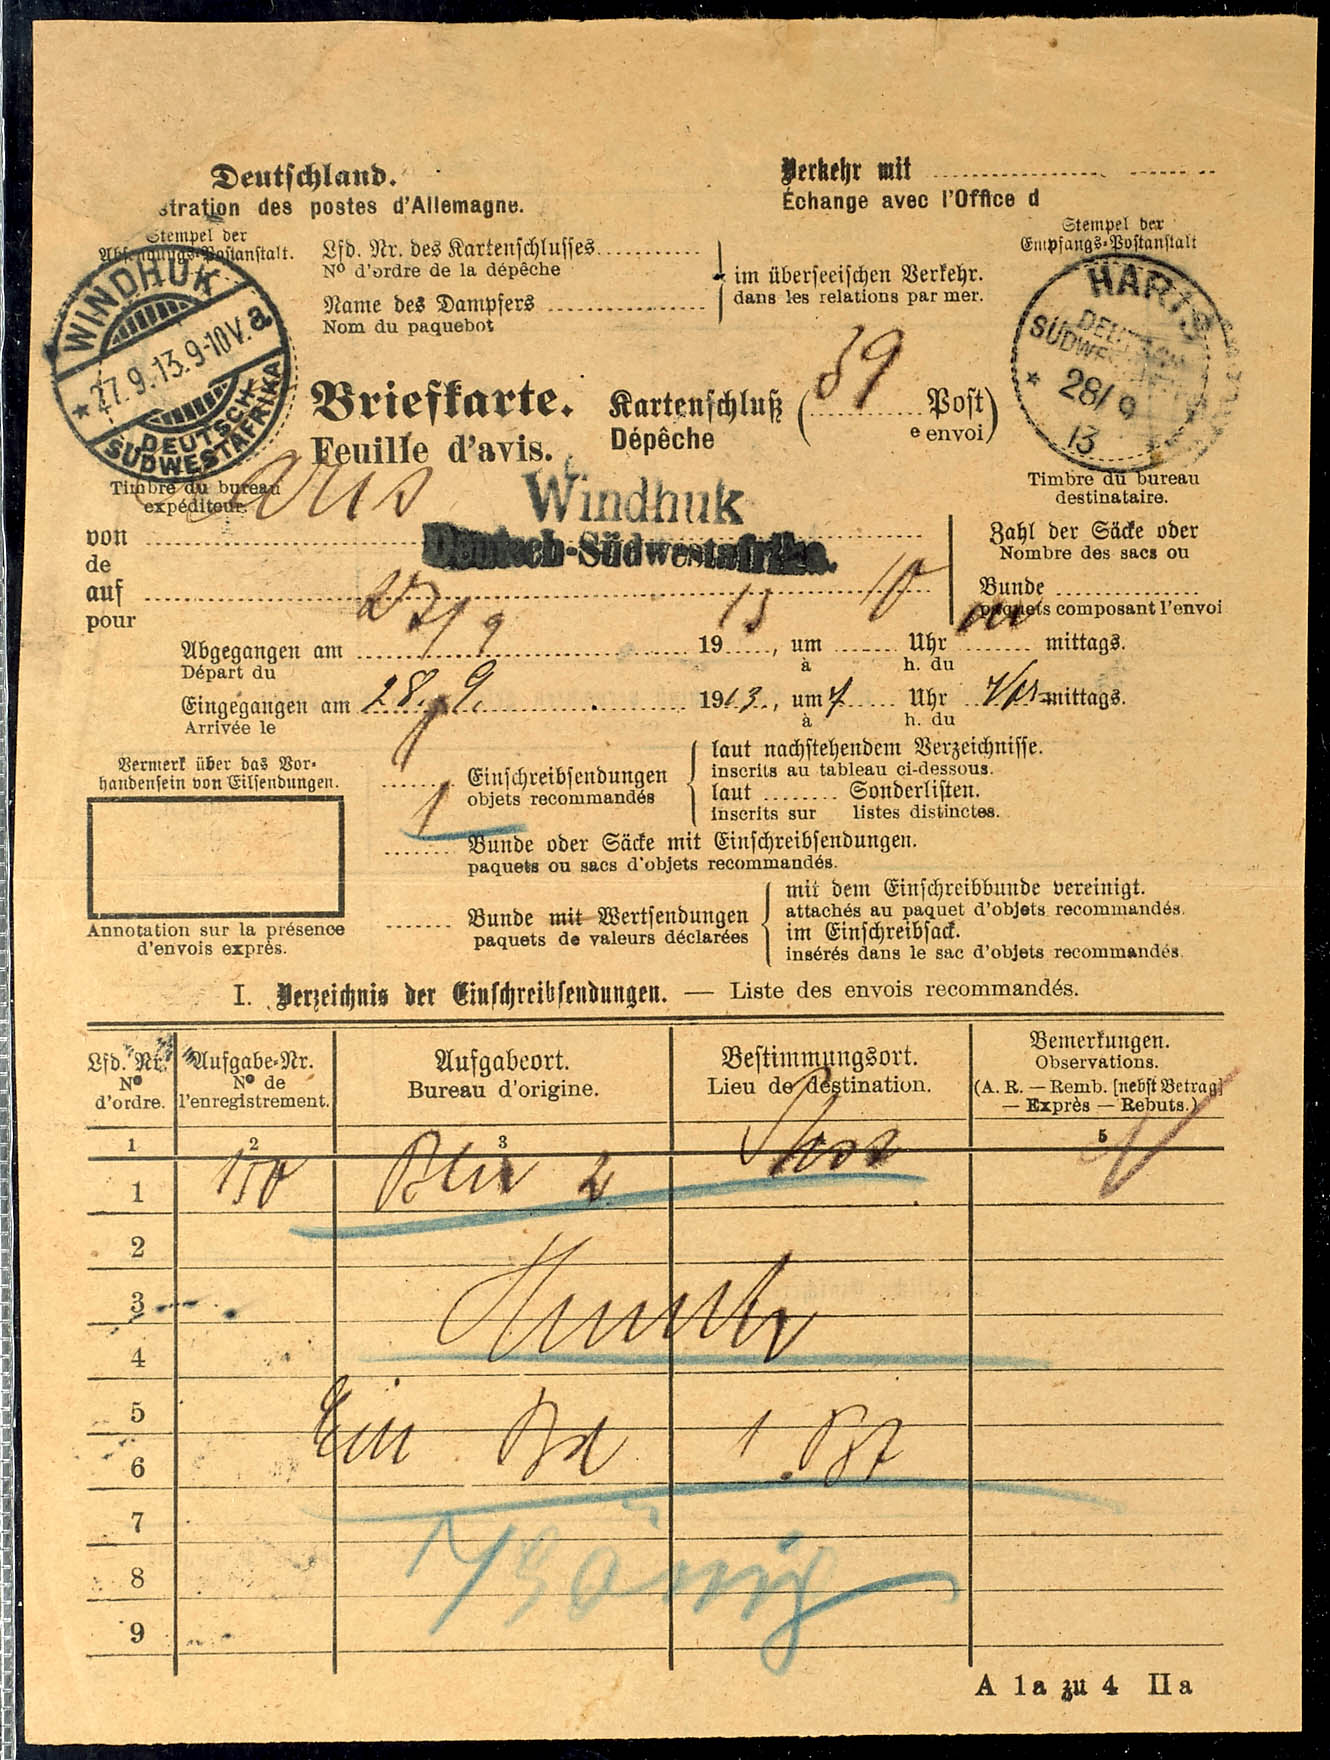 Deutschland.
stration des postes d'Allemagne.
Verkehr mit
Échange avec l'Office d
Stempel der
Absendungs-Postanstalt.
WINDHUK
27.9.13.9-10V. a
DEUTSCH-
SÜDWESTAFRIKA
Timbre du bureau
expéditeur.
Lfd. Nr. des Kartenschlusses
Nº d'ordre de la dépêche
Name des Dampfers
Nom du paquebot
im überseeischen Verkehr.
dans les relations par mer.
Stempel der
Empfangs-Postanstalt
HARIS
DEUTSCH
SÜDWESTAFRIKA
28/9
13
Timbre du bureau
destinataire.
Briefkarte.
Feuille d'avis.
Kartenschluß ( 39 Post)
Dépêche e envoi)
Windhuk
Deutsch-Südwestafrika.
von
de
auf
pour
Zahl der Säcke oder
Nombre des sacs ou
Bunde
paquets composant l'envoi
Abgegangen am 27/9 1913, um 10 Uhr mittags.
Départ du à h. du
Eingegangen am 28.9. 1913, um 7 Uhr Vor-mittags.
Arrivée le à h. du
Vermerk über das Vor-
handensein von Eilsendungen.
Annotation sur la présence
d'envois exprès.
1 Einschreibsendungen
objets recommandés
laut nachstehendem Verzeichnisse.
inscrits au tableau ci-dessous.
laut Sonderlisten.
inscrits sur listes distinctes.
Bunde oder Säcke mit Einschreibsendungen.
paquets ou sacs d'objets recommandés.
Bunde mit Wertsendungen
paquets de valeurs déclarées
mit dem Einschreibbunde vereinigt.
attachés au paquet d'objets recommandés.
im Einschreibsack.
insérés dans le sac d'objets recommandés.
I. Verzeichnis der Einschreibsendungen. — Liste des envois recommandés.
Lfd. Nr.
Nº
d'ordre.
Aufgabe-Nr.
Nº de
l'enregistrement.
Aufgabeort.
Bureau d'origine.
Bestimmungsort.
Lieu de destination.
Bemerkungen.
Observations.
(A. R. — Remb. [nebst Betrag]
— Exprès — Rebuts.)
1 2 3 5
1 150 Bln 2
2
3
4
5
Ein Bd 1
6
7
8
9
A 1a zu 4 IIa